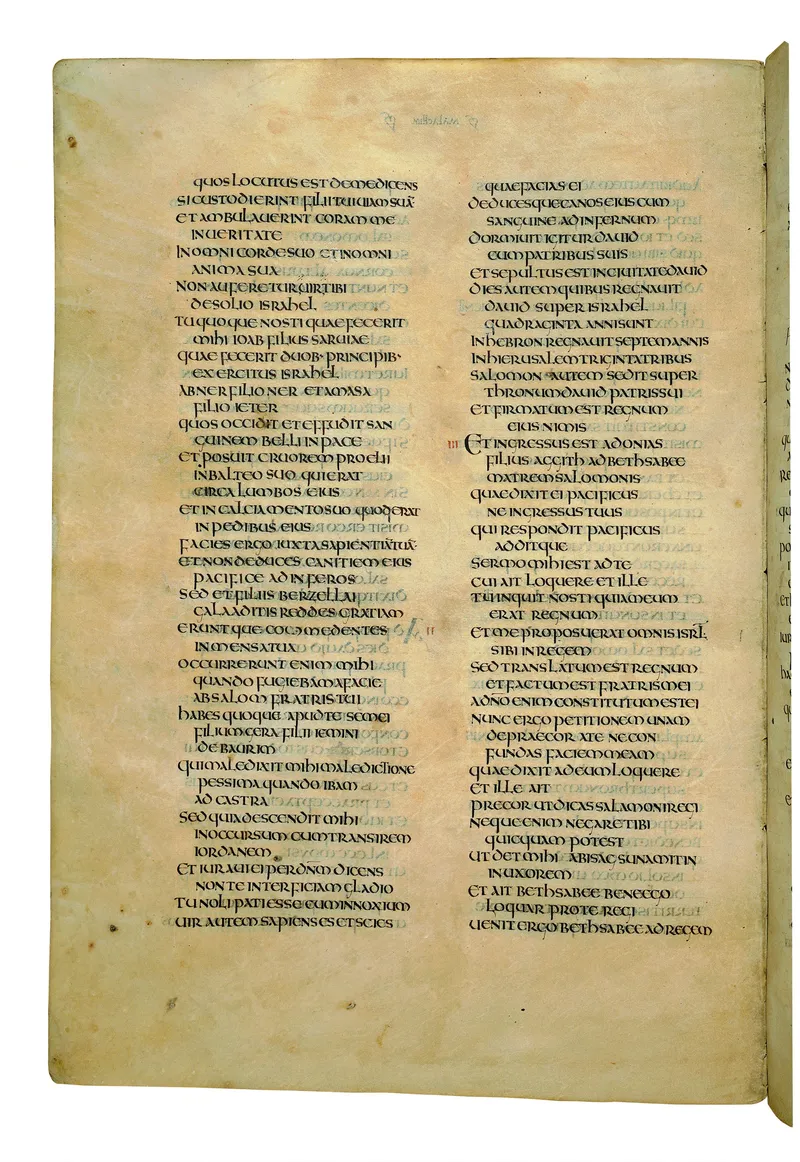 quos locutus est de me dicens
si custodierint filii tui uiam suā
et ambulauerint coram me
in ueritate
in omni corde suo et in omni
anima sua
non auferetur uir tibi
de solio israhel
tu quoque nosti quae fecerit
mihi ioab filius saruiae
quae fecerit duob· principib·
exercitus israhel
abner filio ner et amasa
filio ieter
quos occidit et effudit san
guinem belli in pace
et posuit cruorem proelii
in balteo suo qui erat
circa lumbos eius
et in calciamento suo quod erat
in pedibus eius
facies ergo iuxta sapientiā tuā·
et non deduces canitiem eius
pacifice ad inferos
sed et filiis berzellai
galaaditis reddes gratiam
eruntque comedentes
in mensa tua
occurrerunt enim mihi
quando fugiebam a facie
absalom fratris tui
habes quoque apud te semei
filium gera filii iemini
de baurim
qui maledixit mihi maledictione
pessima quando ibam
ad castra
sed quia descendit mihi
in occursum cum transirem
iordanem
et iuraui ei per dn̄m dicens
non te interficiam gladio
tu noli pati esse eum innoxium
uir autem sapiens es et scies
quae facias ei
deducesque canos eius cum
sanguine ad infernum
dormiuit igitur dauid
cum patribus suis
et sepultus est in ciuitate dauid
dies autem quibus regnauit
dauid super israhel
quadraginta anni sunt
in hebron regnauit septem annis
in hierusalem triginta tribus
salomon autem sedit super
thronum dauid patris sui
et firmatum est regnum
eius nimis
III Et ingressus est adonias
filius aggith ad bethsabee
matrem salomonis
quae dixit ei pacificus
ne ingressus tuus
qui respondit pacificus
additque
sermo mihi est ad te
cui ait loquere et ille
tu inquit nosti quia meum
erat regnum
et me proposuerat omnis isrl̄
sibi in regem
sed translatum est regnum
et factum est fratris mei
a dn̄o enim constitutum est ei
nunc ergo petitionem unam
depraecor a te ne con
fundas faciem meam
quae dixit ad eum loquere
et ille ait
precor ut dicas salamoni regi
neque enim negare tibi
quicquam potest
ut det mihi abisag sunamitin
in uxorem
et ait bethsabee bene ego
loquar pro te regi
uenit ergo bethsabee ad regem